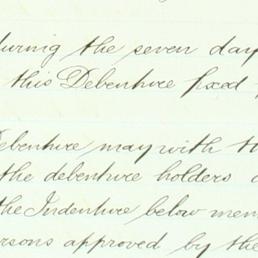 during the seven day
this Debenture fixed
Debenture may with th
the debenture holders
the Indenture below men
rsons approved by the